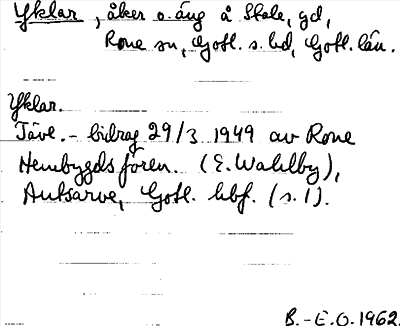 Yklar, åker o. äng å Stale, gd,
Rone sn, Gotl. s. hd, Gotl. län.
Yklar.
Täve.- bidrag 29/3 1949 av Rone
Hembygdsfören. (E. Wahlby),
Autsarve, Gotl. hbf. (s. 1).
B.-E.O. 1962.